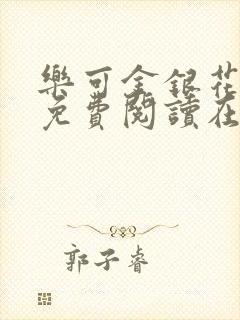 樂可金銀花
免費閱讀在
郭子睿